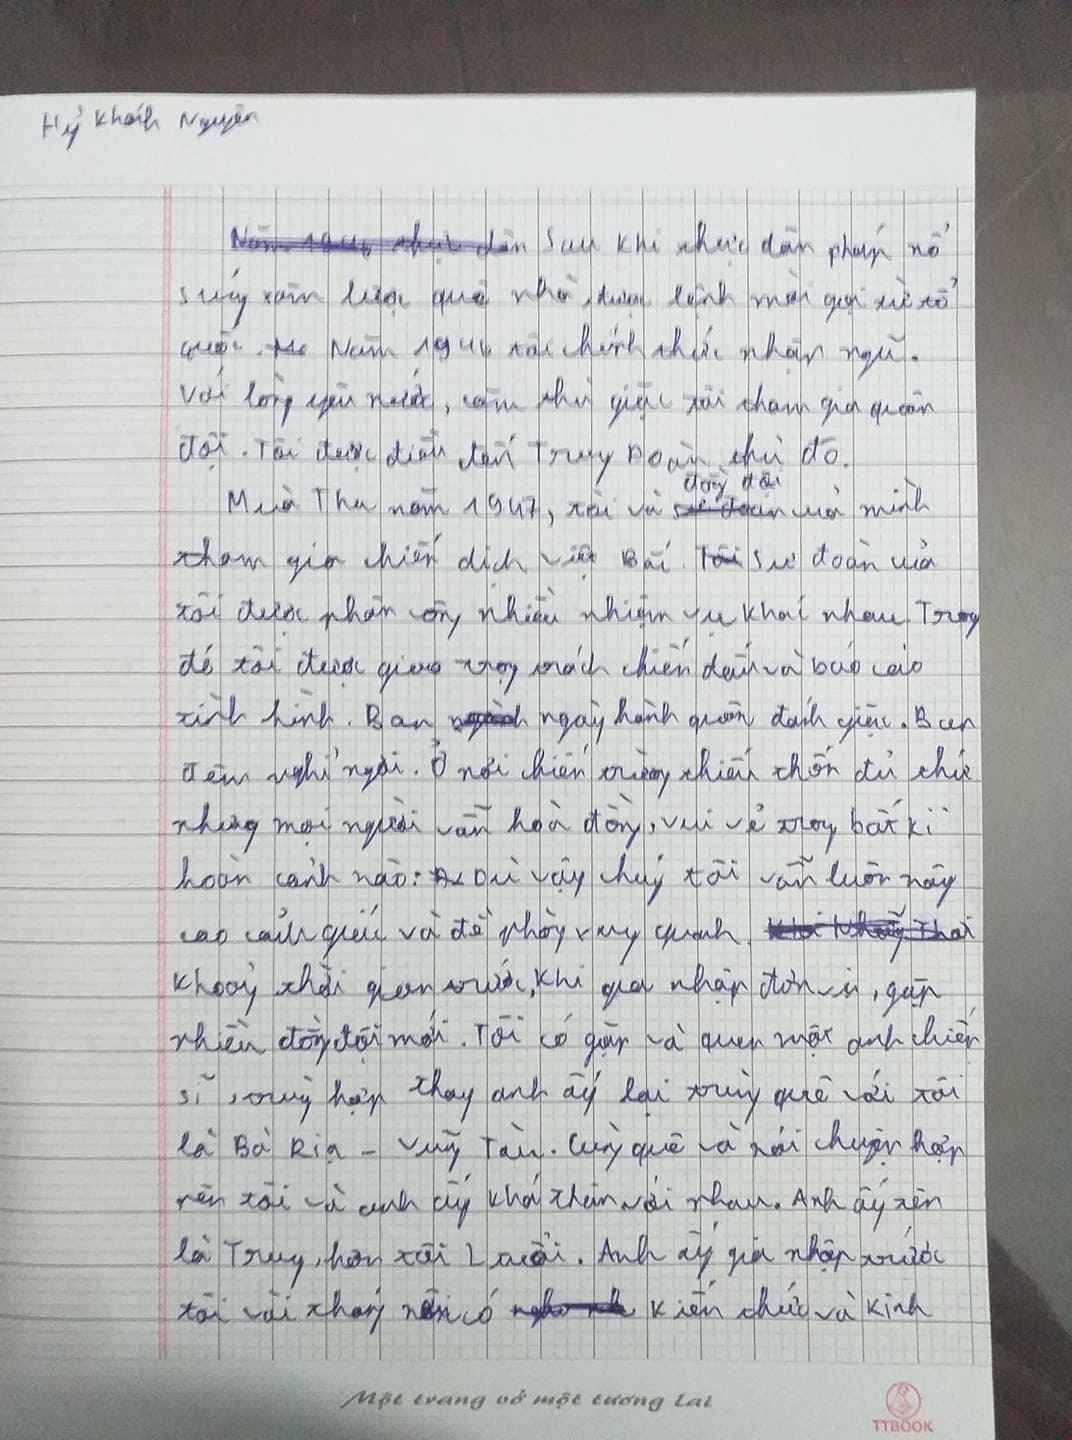 Hỷ Khánh Nguyên
Năm 1946 thực dân Sau khi thực dân pháp nổ
súng xâm lược quê nhà, được lệnh mời gọi từ tổ
quốc. Năm 1946 tôi chính thức nhập ngũ.
Với lòng yêu nước, căm thù giặc tôi tham gia quân
đội. Tôi được điều đến Trung Đoàn thủ đô.
đồng đội
Mùa Thu năm 1947, tôi và sư đoàn của mình
tham gia chiến dịch Việt Bắc. Tôi Sư đoàn của
tôi được phân công nhiều nhiệm vụ khác nhau. Trong
đó tôi được giao trọng trách chiến đấu và báo cáo
tình hình. Ban ngày hành quân đánh giặc. Ban
đêm nghỉ ngơi. Ở nơi chiến trường thiếu thốn đủ thứ
nhưng mọi người vẫn hoà đồng, vui vẻ trong bất kì
hoàn cảnh nào. Dù vậy chúng tôi vẫn luôn nâng
cao cảnh giác và đề phòng xung quanh. Thời
Khoảng thời gian trước, khi gia nhập đơn vị, gặp
nhiều đồng đội mới. Tôi có gặp và quen một anh chiến
sĩ, trùng hợp thay anh ấy lại trùng quê với tôi
là Bà Rịa - Vũng Tàu. Cùng quê và nói chuyện hợp
nên tôi và anh ấy khá thân với nhau. Anh ấy tên
là Trung, hơn tôi 2 tuổi. Anh ấy gia nhập trước
tôi vài tháng nên có kiến thức và kinh
Một trang vở một tương lai
TTBOOK